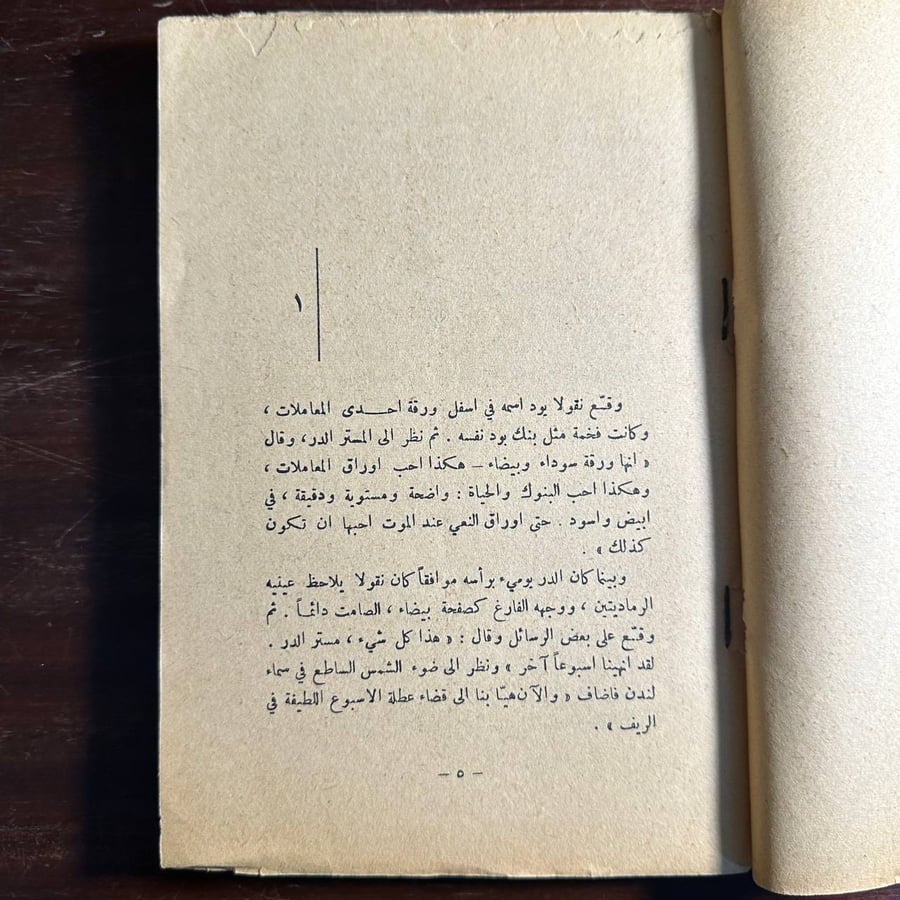 ١
وقّع نقولا يود اسمه في اسفل ورقة احـــدى المعاملات ،
وكانت فخمة مثل بنك بود نفسه . ثم نظر الى المستر الدر، وقال
« انها ورقة سوداء وبيضاء ــ هكذا احب اوراق المعاملات ،
وهكذا احب البنوك والحياة : واضحة ومستوية ودقيقة ، في
ابيض واسود . حتى اوراق النعي عند الموت احبها ان تكون
كذلك » .
وبينما كان الدر يوميء برأسه موافقاً كان نقولا يلاحظ عينيه
الرماديتين ، ووجهه الفارغ كصفحة بيضاء ، الصامت دائماً . ثم
وقّع على بعض الرسائل وقال : « هذا كل شيء ، مستر الدر .
لقد انهينا اسبوعاً آخر » ونظر الى ضوء الشمس الساطع في سماء
لندن فاضاف « والآن هيّا بنا الى قضاء عطلة الاسبوع اللطيفة في
الريف » .
– ٥ –